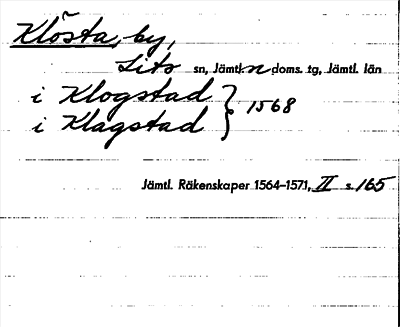 Klösta, by,
Lits sn, Jämtl. n. doms. tg, Jämtl. län
i Klogstad } 1568
i Klagstad
Jämtl. Räkenskaper 1564–1571, II s. 165